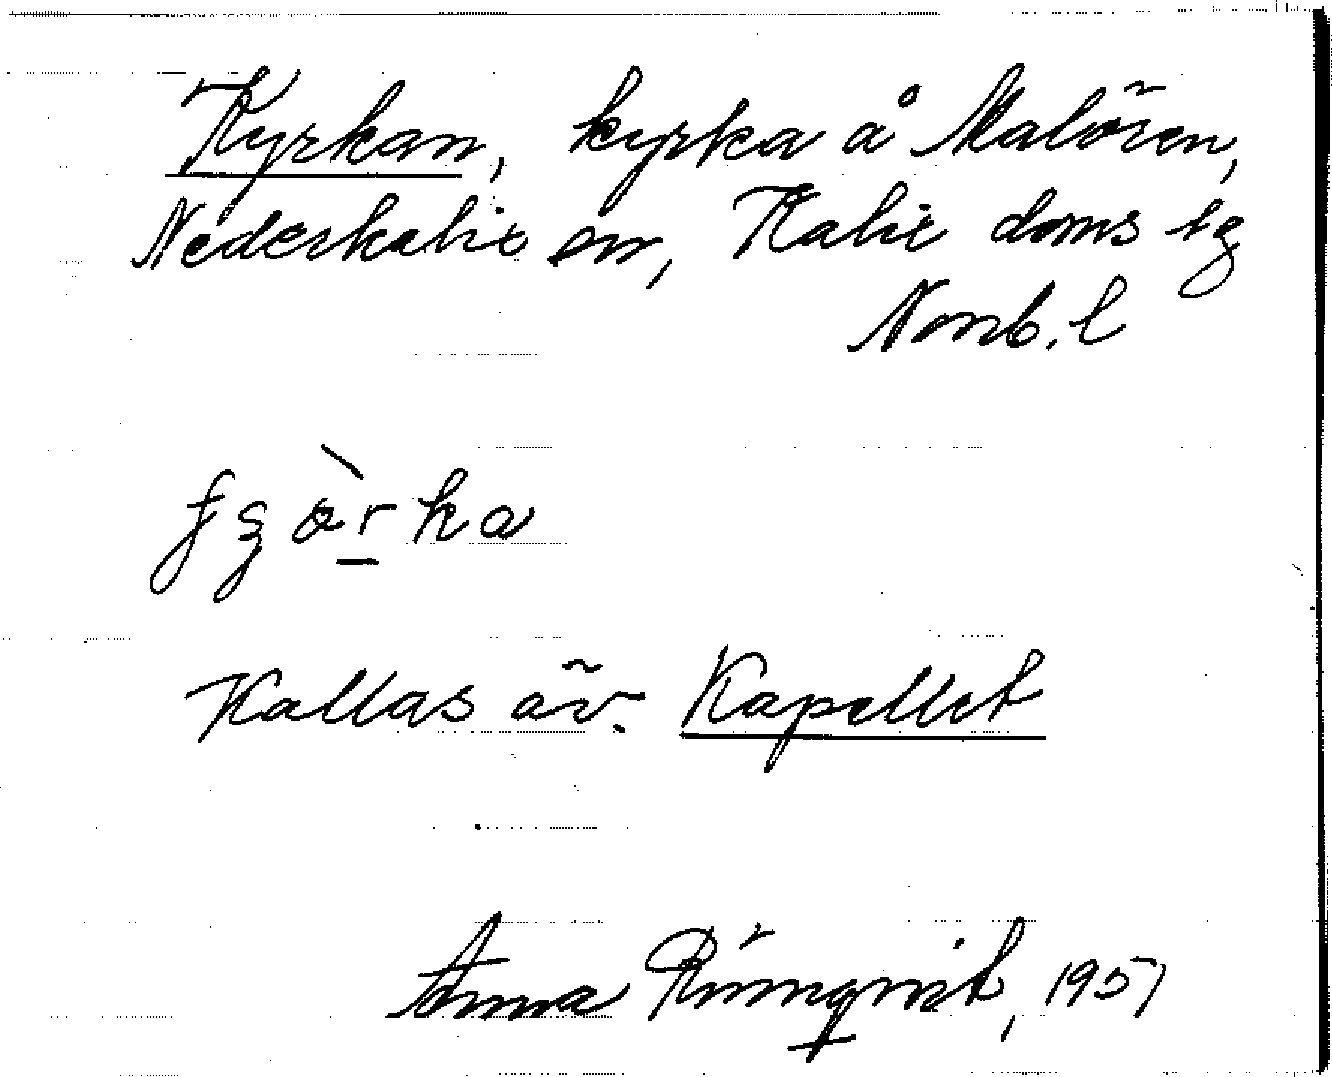 Kyrkan, kyrka å Malören,
Nederkalix sn, Kalix doms tg
Norrb. l
Kallas äv. Kapellet
Anna Rönnqvist, 1957